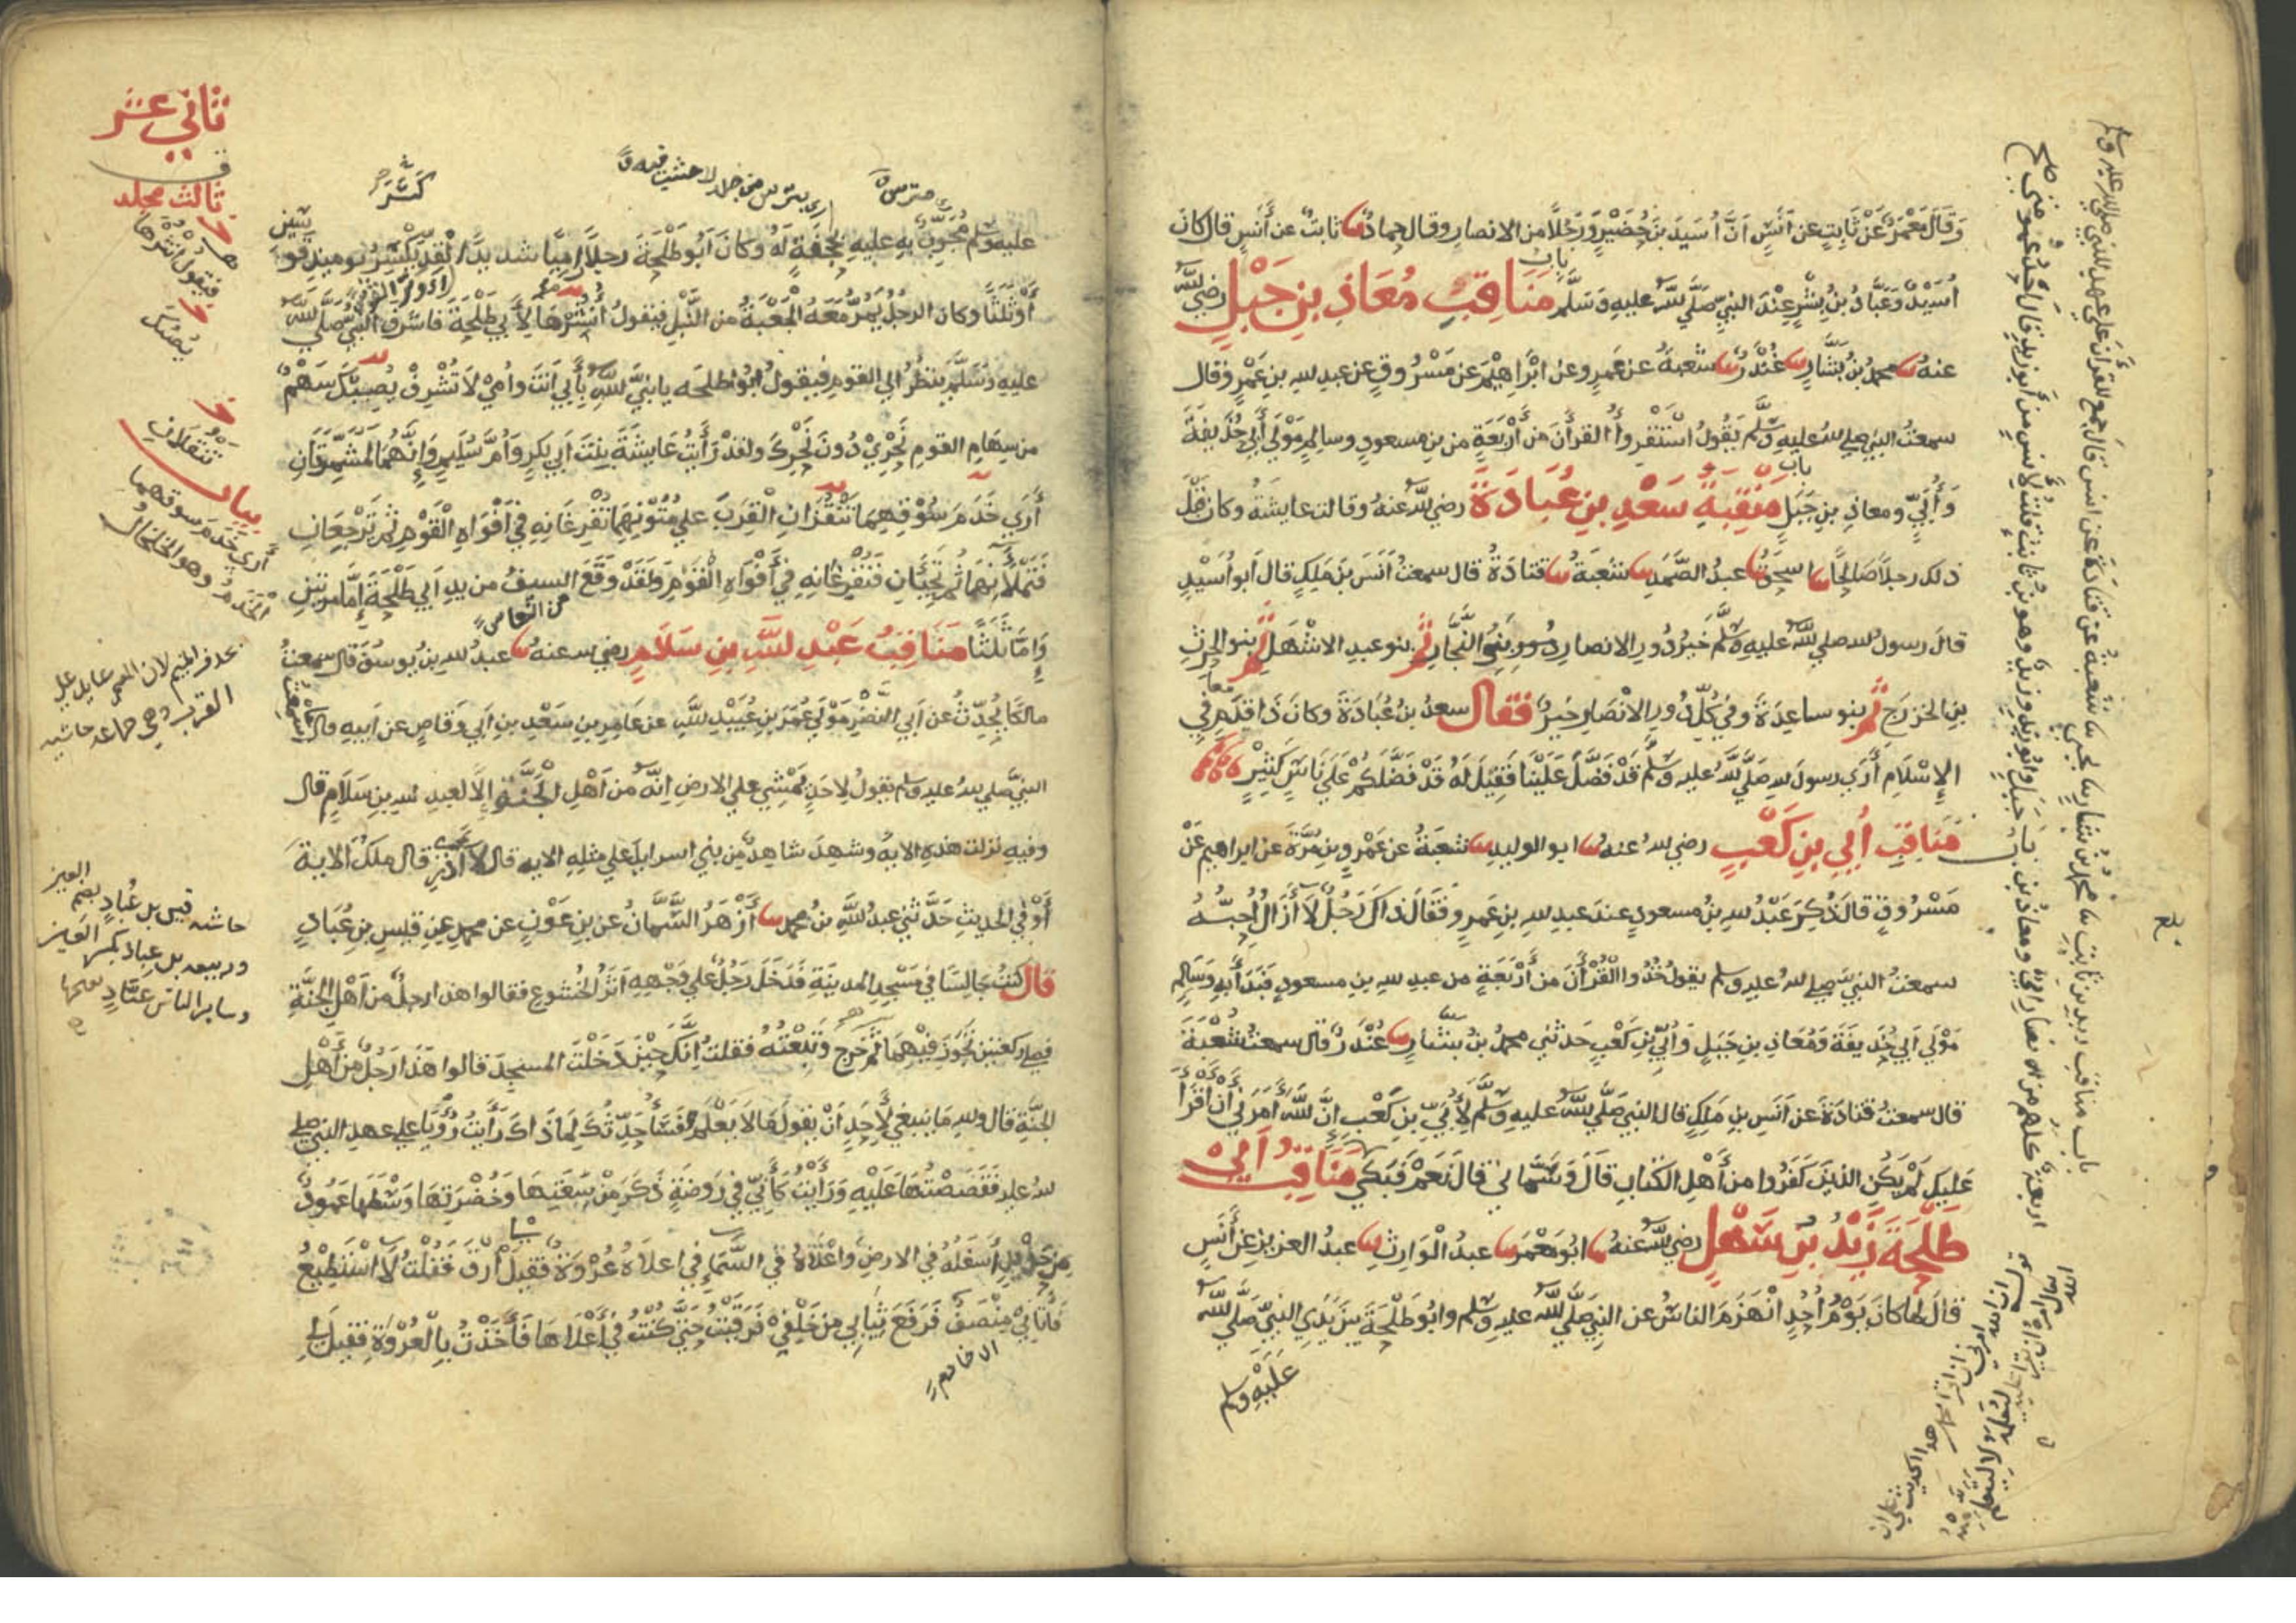 وَقَالَ مَعْمَرٌ عَنْ ثَابِتٍ عن أَنَسٍ اَنَّ اُسَيدَ بنَ حُضَيْرٍ وَرَجُلًا من الانصارِ وقال حمادٌ ثابتٌ عن أَنَسٍ قال كانَ
اُسَيْدٌ وَعَبَّادُ بنُ بِشْرٍ عِنْدَ النبيِّ صَلَّى اللهُ عليهِ وَسَلَّم باب مَنَاقِبُ مُعَاذِ بنِ جَبَلٍ رضي الله
عنهُ محمدُ بنُ بَشَّارٍ غُنْدَرٌ شعبةُ عن عَمرٍو عن ابْرَاهِيْمَ عن مَسْرُوقٍ عن عبدِ اللهِ بنِ عَمْرٍو قال
سمعتُ النبيَّ صلى الله عليهِ وَسَلَّم يَقُولُ اسْتَقْرِؤُا القرأنَ من أَرْبَعَةٍ من بنِ مسعودٍ وسالمٍ مَوْلَى أَبِي حُذَيفَةَ
وَأُبَيٍّ ومعاذِ بنِ جَبَلٍ باب مَنْقِبَةُ سَعْدِ بنِ عُبَادَةَ رضي الله عنهُ وقالت عايشةُ وكان قَبْلَ
ذلك رجلًا صَالِحًا اسحقُ عبدُ الصَّمَدِ شعبَةُ قتادَةُ قال سمعتُ أَنَسَ بنَ مٰلِكٍ قال أَبو اُسَيْدٍ
قال رسولُ الله صلى الله عليهِ وَسَلَّم خَيرُ دُورِ الانصارِ بَنُو النَّجَّارِ ثم بنو عبدِ الاشْهَلِ ثم بنو الحرثِ
بنِ الخزرَجِ ثم بنو ساعِدَةَ وفي كُلِّ دُورِ الاِنْصَارِ خَيرٌ فقال سعدُ بنُ عُبَادَةَ وكانَ ذَا قِدَمٍ في
الاِسْلَامِ أُرَى رسولَ اللهِ صَلَّى اللهُ عليهِ وَسَلَّم قَدْ فَضَّلَ عَلَيْنَا فَقِيْلَ لَهُ قَدْ فَضَّلَكُمْ عَلَى نَاسٍ كَثِيْرٍ
باب مَنَاقِبُ أُبَيِّ بنِ كَعْبٍ رضي اللهُ عنهُ ابو الوليدِ شعبَةُ عن عَمْرِو بنِ مُرَّةَ عن ابراهيمَ عَنْ
مَسْرُوقٍ قال ذُكِرَ عَبْدُ اللهِ بنُ مسعودٍ عندَ عبدِ اللهِ بنِ عَمرٍو فَقَالَ ذاكَ رَجُلٌ لَا أَزَالُ اُحِبُّهُ
سمعتُ النبيَّ صلى اللهُ عليهِ وسلم يقولُ خُذُوا القُرْأَنَ من أَرْبَعَةٍ من عبدِ اللهِ بنِ مسعودٍ فَبَدَأَ بِهِ وَسَالِمٍ
مَوْلَى اَبِي حُذَيفَةَ وَمُعَاذِ بنِ جَبَلٍ وَأُبَيِّ بنِ كَعْبٍ حدثني محمدُ بنُ بَشَّارٍ غُنْدَرٌ قال سمعتُ شُعْبَةَ
قال سمعتُ قتادَةَ عن أَنَسِ بنِ مٰلِكٍ قال النبيُّ صَلَّى اللهُ عليهِ وَسَلَّم لِأُبَيِّ بنِ كَعْبٍ اِنَّ اللهَ أَمَرَنِي أَنْ أَقْرَأَ
عَلَيكَ لَمْ يَكُنِ الذينَ كَفَرُوا من أَهْلِ الكتابِ قَالَ وَسَمَّاني قال نَعَمْ فَبَكَى مَنَاقِبُ اَبِيْ
طَلْحَةَ زَيْدُ بن سَهْلٍ رضي الله عنهُ ابُو مَعْمَرٍ عبدُ الوَارِثِ عبدُ العزيزِ عن أَنَسٍ
قال لما كانَ يَوْمُ أُحُدٍ انْهَزَمَ الناسُ عن النبيِّ صَلَّى اللهُ عليهِ وسلم وابُو طَلْحَةَ بَيْنَ يَدَيِ النبيِّ صَلَّى الله
عَلَيْهِ وسلم
باب مناقب زيد بن ثابت محمد بن بشار يحيى شعبة عن قتادة عن انس قال جمع القرآن على عهد النبي صلى الله عليه وسلم
اربعة كلهم من الانصار ابي ومعاذ بن جبل وابو زيد وزيد وهو بن ثابت قلت لانس من أبو زيد قال احد عمومتي صح
ثاني عشر
ثالث مجلد
عليه وَسَلم مُجَوِّبٌ بهِ عليهِ بحَجَفَةٍ لَهُ وكانَ ابُو طَلْحَةَ رجلًا رامِيًا شديدَ القِدِّ يَكْسِرُ يوميذٍ قوسَيْنِ
أَوْ ثَلَثًا وكان الرجلُ يَمُرُّ مَعَهُ الجَعْبَةُ من النَّبْلِ فيقولُ اُنْثُرْهَا لِأَبِي طَلْحَةَ فاشرفَ النبيُّ صَلَّى الله
عليهِ وَسَلَّم يَنظُرُ الى القومِ فيقولُ ابُو طلحَه يا نبيَّ اللهِ بأَبِي اَنتَ وأُمِّي لَا تُشْرِفْ يُصِيْبُكَ سَهْمٌ
من سِهَامِ القومِ نَحْرِيْ دُونَ نَحْرِكَ ولقدْ رَأَيْتُ عَايِشَةَ بنتَ اَبِي بكرٍ وَاُمَّ سُلَيمٍ وَاِنَّهُمَا لَمُشَمِّرَتَانِ
أَرَى خَدَمَ سُوْقِهِمَا تَنْقُزَانِ القِرَبَ على مُتُونِهِمَا تُفْرِغَانِهِ في أَفْوَاهِ القَوْمِ ثُمَّ تَرْجِعَانِ
فَتَمْلَأَنِهَا ثُمَّ تَجِيْأَنِ فَتُفْرِغَانِهِ في أَفْوَاهِ القَوْمِ وَلَقَدْ وَقَعَ السيفُ من يدِ اَبي طَلْحَةَ اِمَّا مَرَّتَيْنِ
وَاِمَّا ثَلَثًا مَنَاقِبُ عَبْدِ اللهِ بنِ سَلَامٍ رضي الله عنهُ عبدُ اللهِ بنُ يُوسُفَ قال سمعتُ
مالكًا يُحَدِّثُ عن أَبي النَّضْرِ مَوْلَى عُمَرَ بنِ عُبَيْدِ اللهِ عن عَامِرِ بنِ سَعْدِ بنِ اَبي وَقَّاصٍ عن اَبيهِ قال ما سمعتُ
النبيَّ صلى اللهُ عليهِ وسلم يقولُ لِاَحَدٍ يَمْشِي على الارضِ اِنَّهُ من أَهْلِ الجَنَّةِ اِلَّا لعبدِ اللهِ بنِ سَلَامٍ قال
وفيهِ نزلت هذهِ الايةُ وشهِدَ شاهِدٌ من بني اسرايلَ على مثلِهِ الايه قال لا أَدْرِي قال مٰلِكٌ الايةَ
أَوْ في الحديثِ حَدَّثَني عبدُ اللهِ بنُ محمدٍ أَزْهَرُ السَّمَّانُ عن بنِ عَوْنٍ عن محمدٍ عن قيسِ بنِ عُبَادٍ
قال كنتُ جالِسًا في مَسْجِدِ المدينةِ فَدَخَلَ رَجُلٌ على وَجْهِهِ اَثَرُ الخُشُوعِ فقالوا هذا رجلٌ من أَهْلِ الجَنَّةِ
فصلى ركعتينِ تَجَوَّزَ فِيْهِمَا ثم خَرَج وَتَبِعْتُهُ فقلتُ اِنَّكَ حِيْنَ دَخَلْتَ المسجِدَ قالوا هَذَا رَجُلٌ من أَهْلِ
الجَنَّةِ قال واللهِ مَا ينبغي لِأَحَدٍ أَنْ يقولَ مَا لَا يَعْلَمُ فَسَأُحَدِّثُكَ لِمَ ذَاكَ رَأَيْتُ رُؤْيَا على عهدِ النبيِّ صلى
اللهُ عليهِ فَقَصَصْتُهَا عَلَيْهِ وَرَأَيْتُ كَأَنِّي في رَوْضَةٍ ذَكَرَ مِنْ سَعَتِهَا وَخُضْرَتِهَا وَسْطَهَا عَمُودٌ
مِن حَدِيدٍ أَسْفَلُهُ في الارضِ وأَعْلَاهُ في السَّمَاءِ في اعلاهُ عُرْوَةٌ فَقِيلَ ارْقَ فَقُلْتُ لَا اسْتَطِيْعُ
فأَتَانِيْ مِنْصَفٌ فَرَفَعَ ثِيَابي مِن خَلْفِيْ فَرَقِيْتُ حَتَّى كُنْتُ في أَعْلَاهَا فأَخَذْتُ بِالعُرْوَةِ فقيلَ لي
الخادم
من النعاس
تنقلان
بيان
أرى خدم سوقهما
الخدم وهو الخلخال
حاشيه قيس بن عُباد بضم العين
وسائر الناس عبّاد